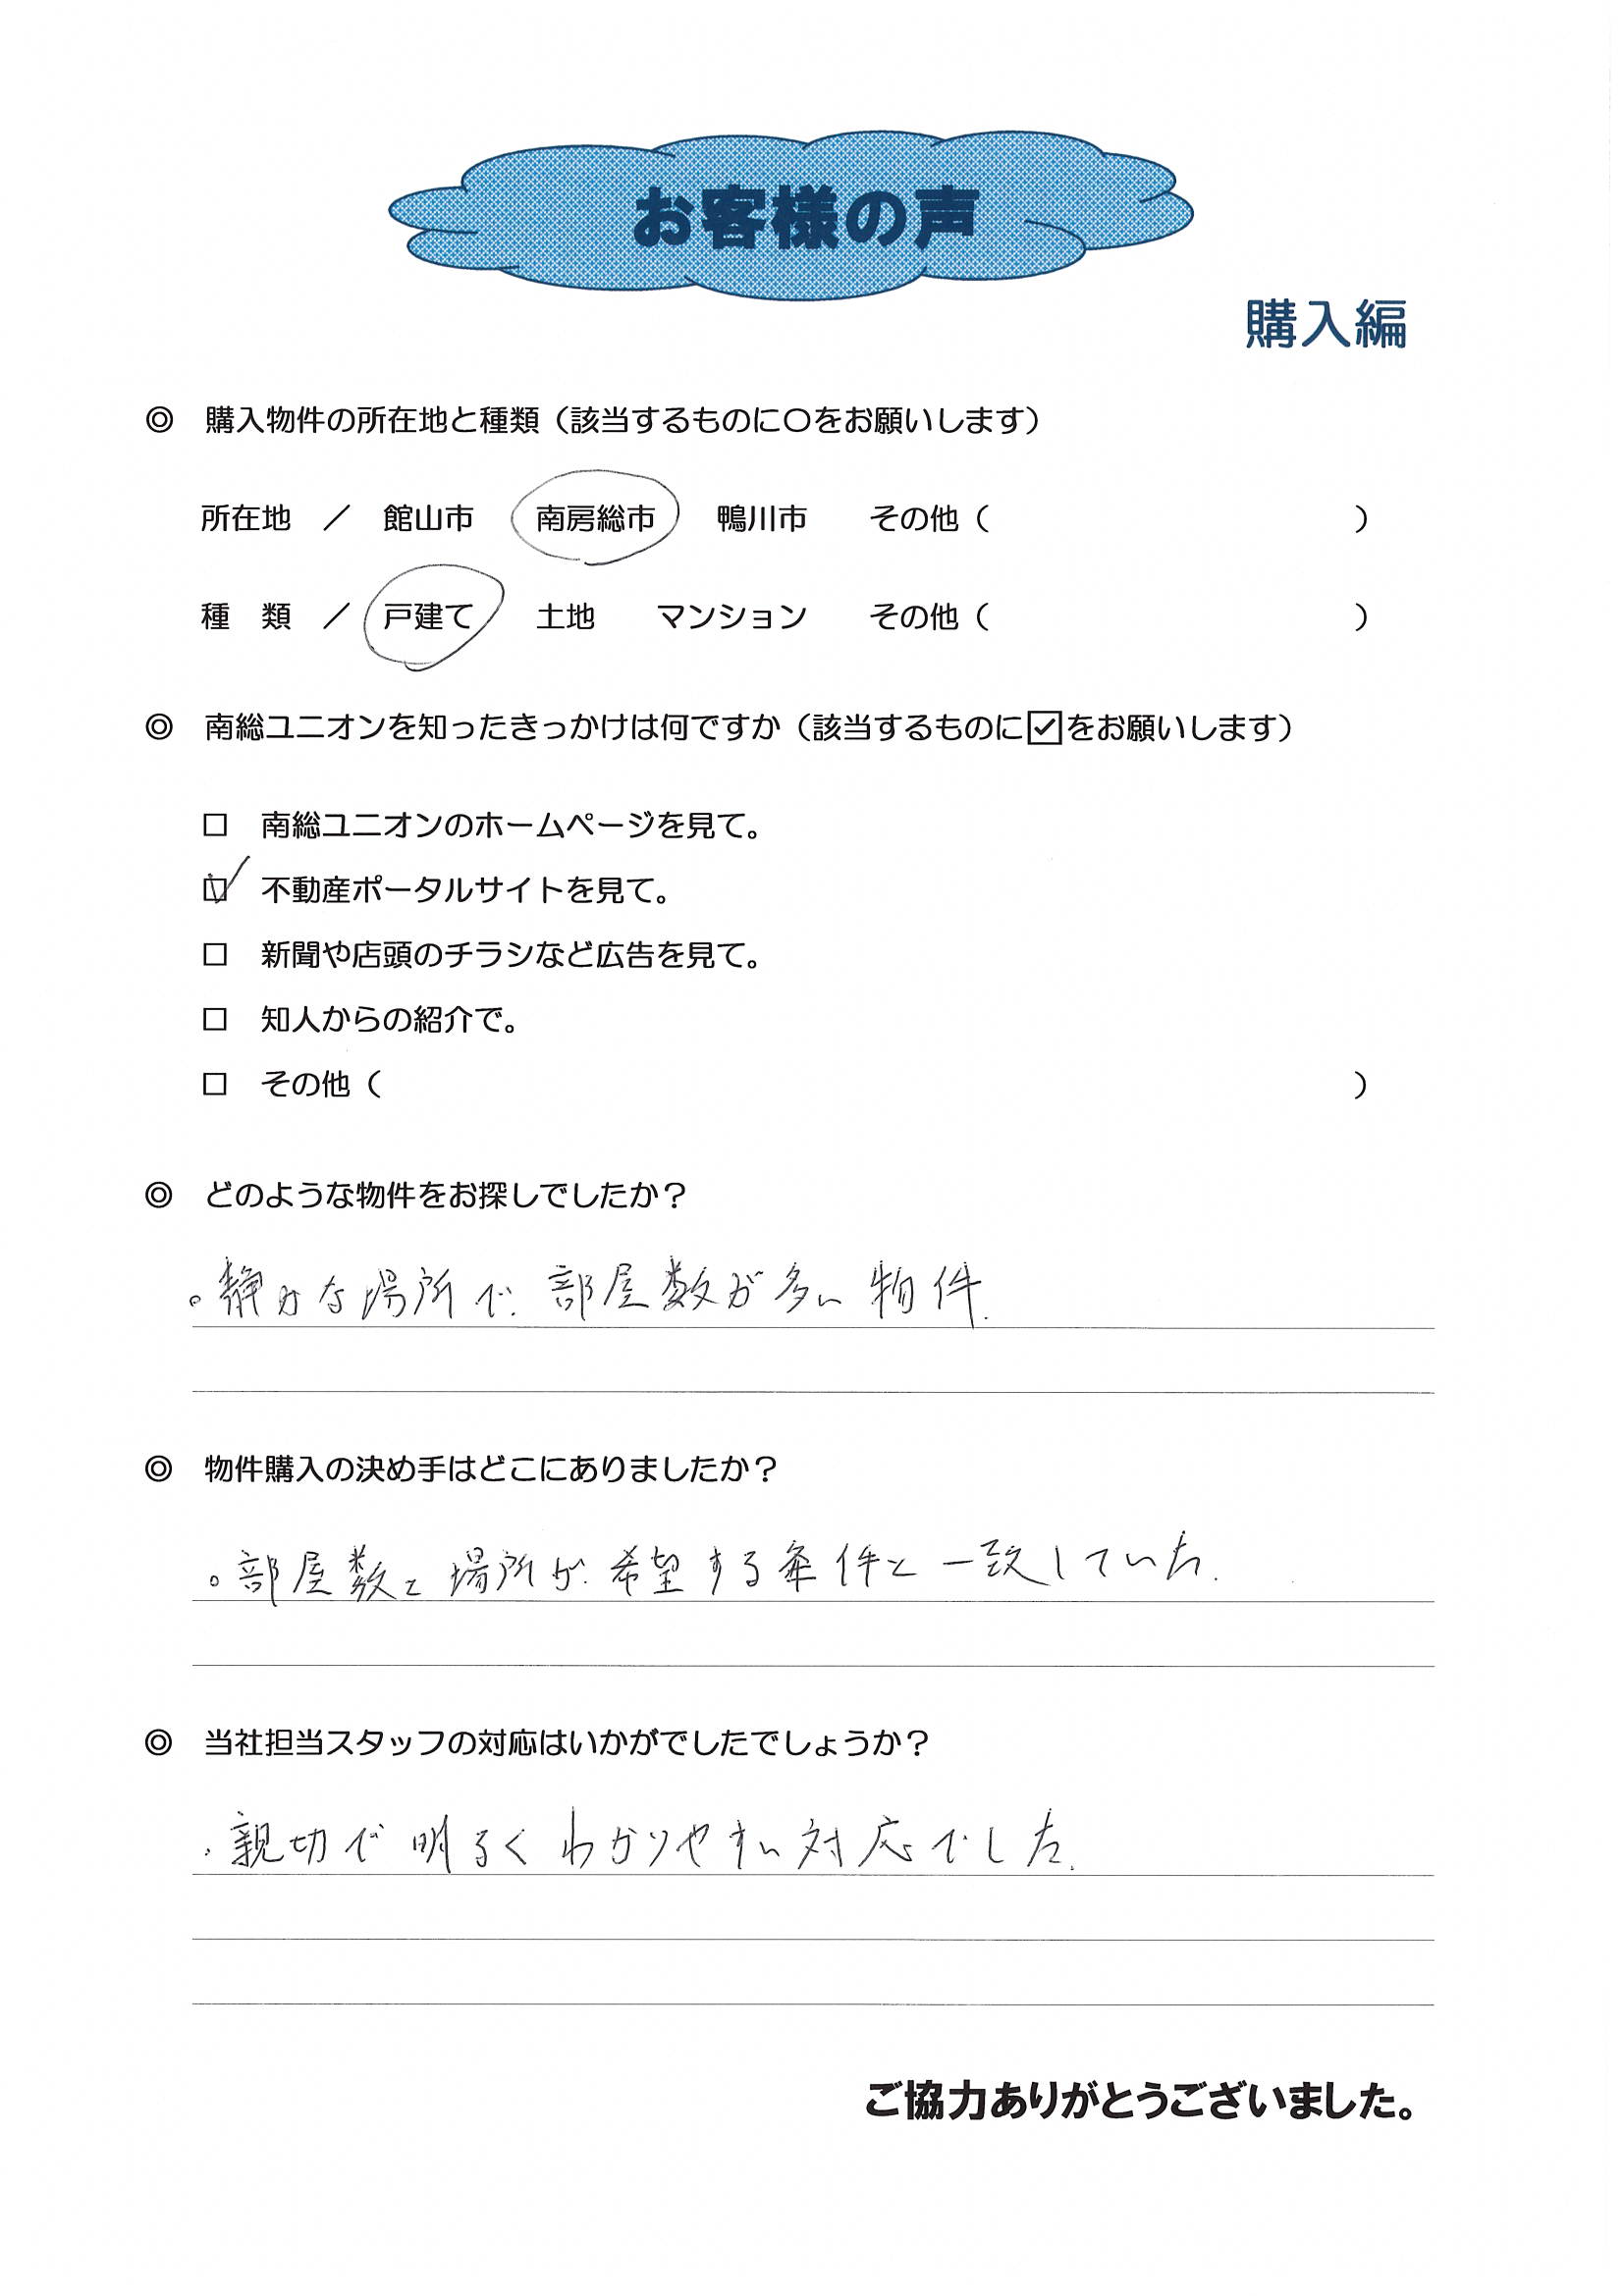 お客様の声
購入編
◎ 購入物件の所在地と種類（該当するものに〇をお願いします）
所在地 ／ 館山市 南房総市 鴨川市 その他（ ）
種 類 ／ 戸建て 土地 マンション その他（ ）
◎ 南総ユニオンを知ったきっかけは何ですか（該当するものに☑をお願いします）
□ 南総ユニオンのホームページを見て。
☑ 不動産ポータルサイトを見て。
□ 新聞や店頭のチラシなど広告を見て。
□ 知人からの紹介で。
□ その他（ ）
◎ どのような物件をお探しでしたか？
。静かな場所で、部屋数が多い物件.
◎ 物件購入の決め手はどこにありましたか？
。部屋数と場所が、希望する条件と一致していた.
◎ 当社担当スタッフの対応はいかがでしたでしょうか？
・親切で明るくわかりやすい対応でした.
ご協力ありがとうございました。